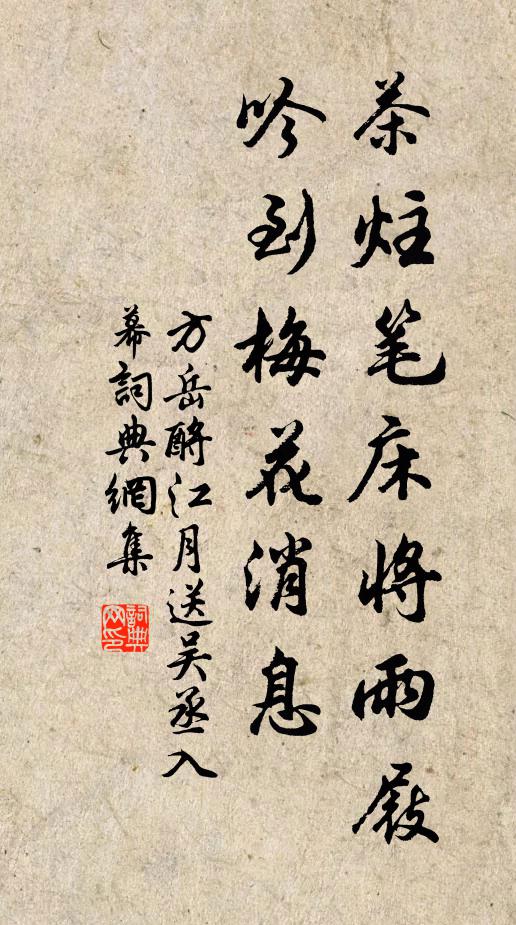 茶炷笔床将雨屐
吟到梅花消息
方岳酹江月送吴丞入
幕詞典網集
詞典网印